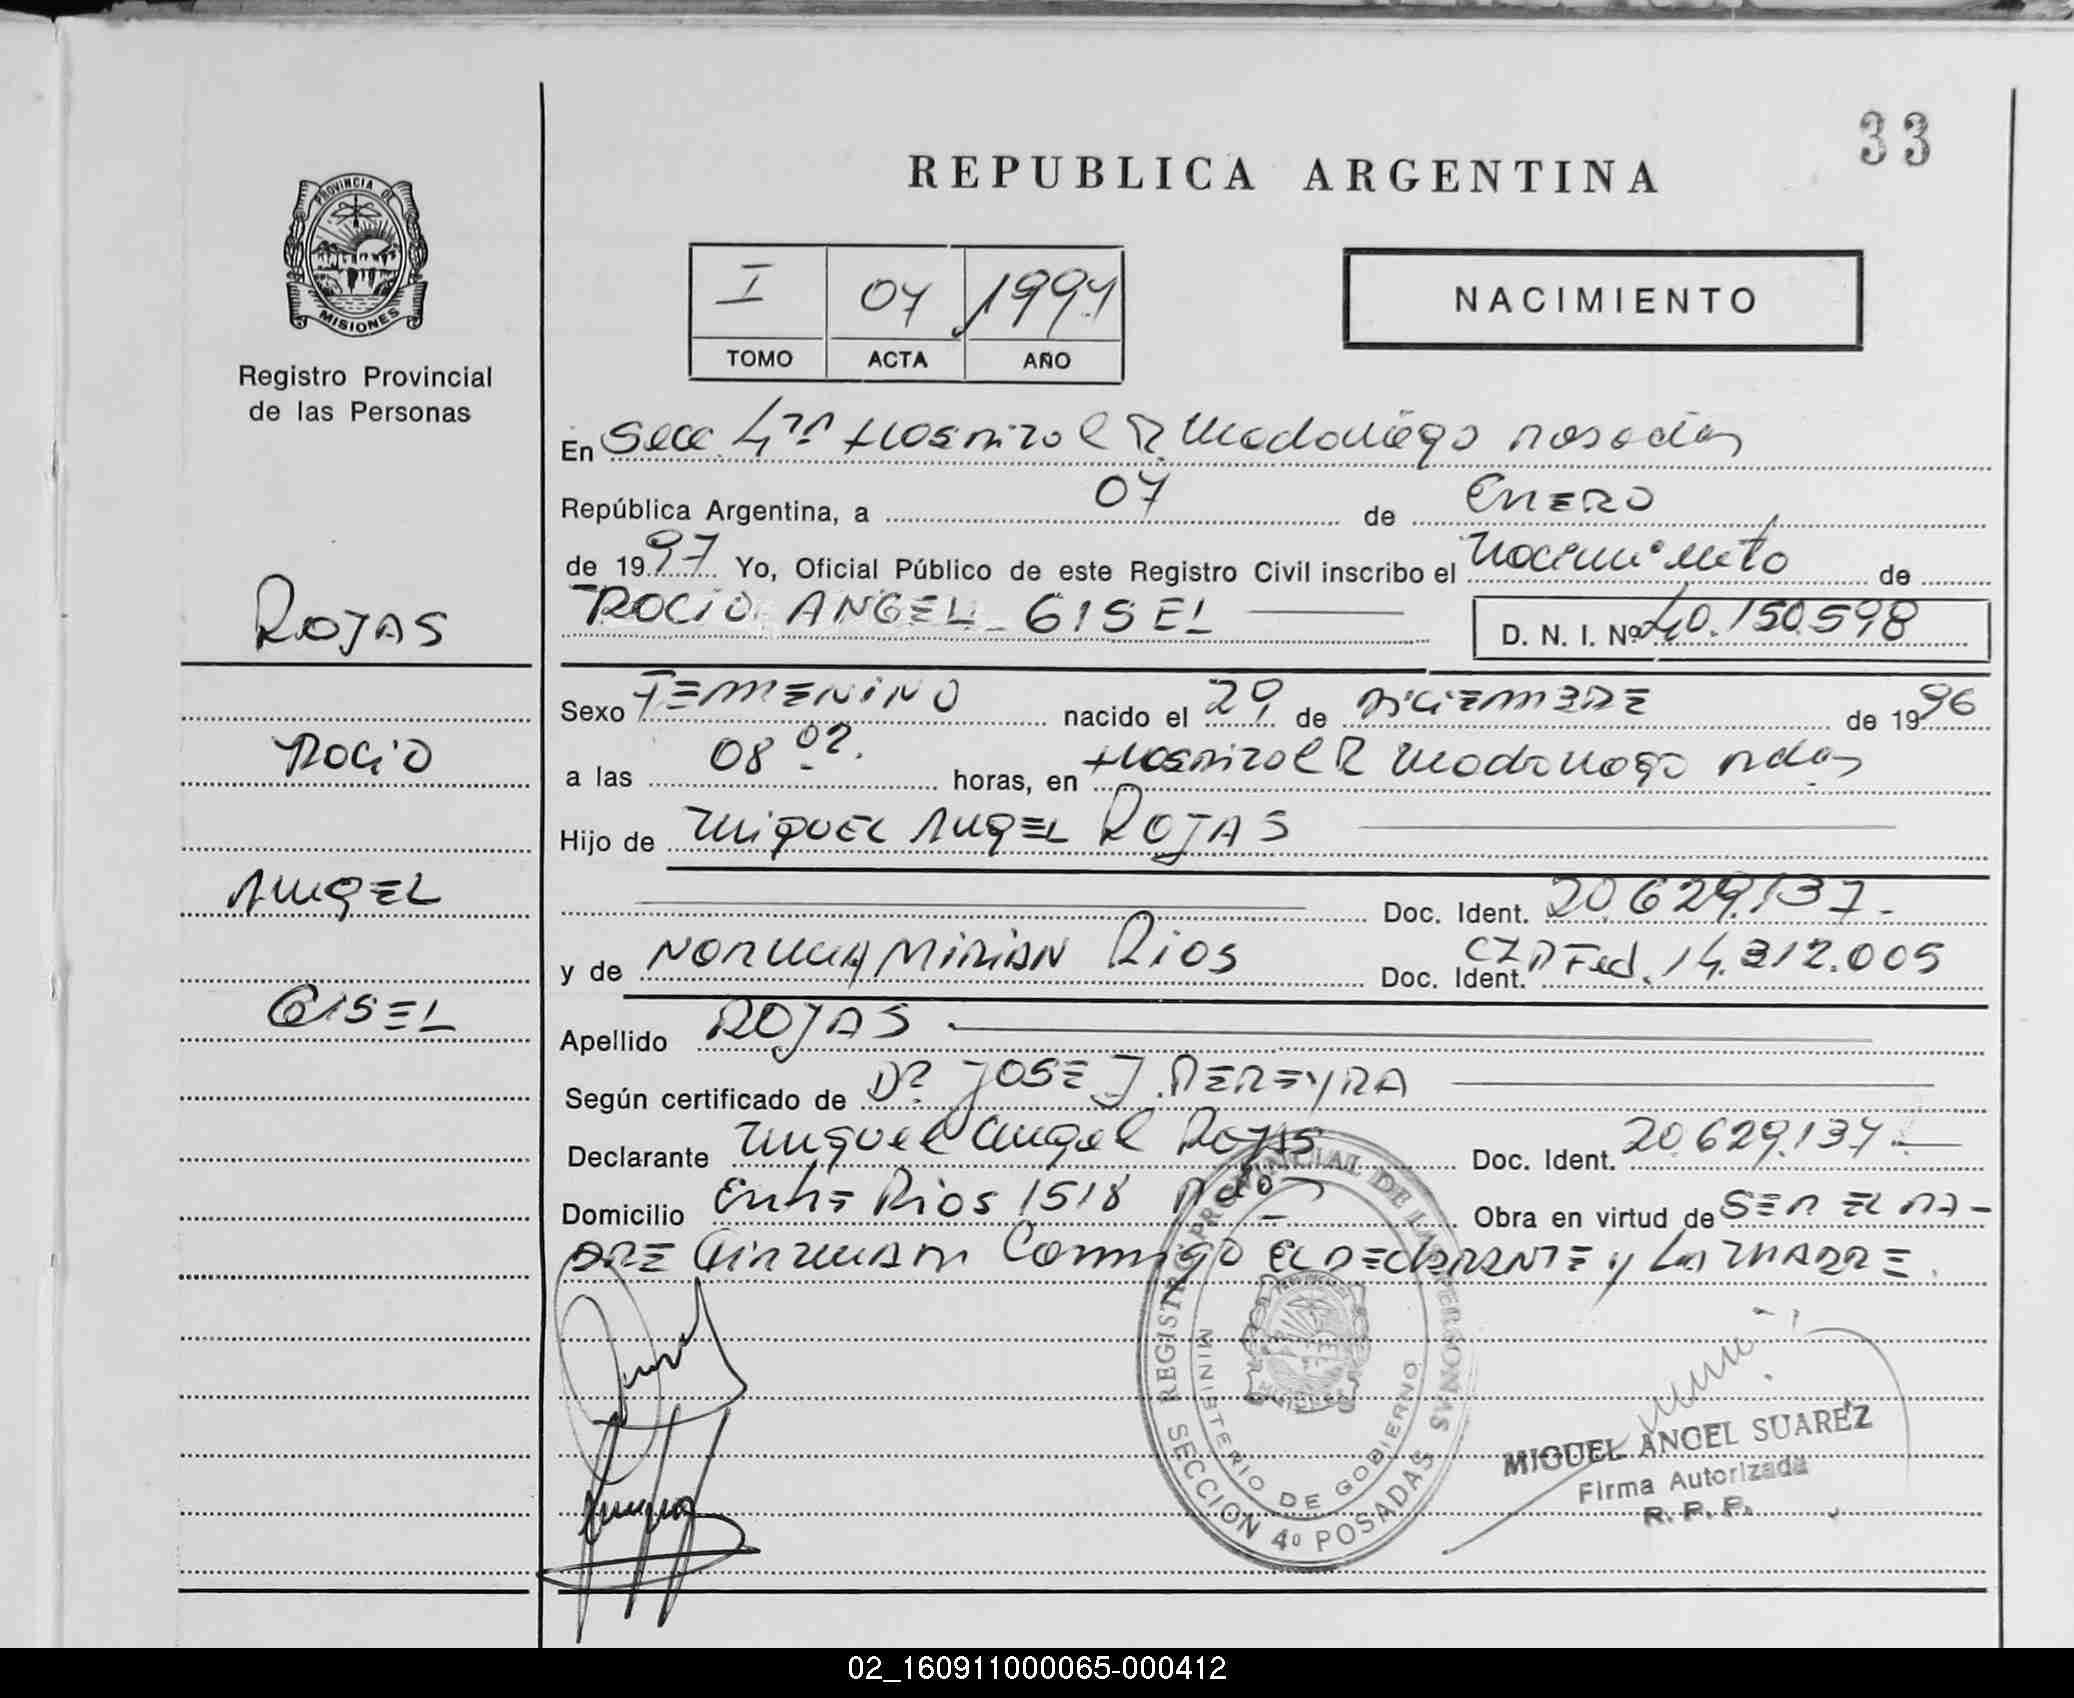 33
REPUBLICA ARGENTINA
PROVINCIA DE
MISIONES
Registro Provincial
de las Personas
I 07 1997
TOMO ACTA AÑO
NACIMIENTO
En Secc. 4ta Hospital R. Madariaga Posadas
República Argentina, a 07 de ENERO
de 1997 Yo, Oficial Público de este Registro Civil inscribo el Nacimiento de
ROCIO ANGEL GISEL D. N. I. Nº 40.150.598
ROJAS
Sexo FEMENINO nacido el 29 de DICIEMBRE de 1996
ROCIO
a las 08 02. horas, en Hospital R Madariaga Pdas
Hijo de MIGUEL ANGEL ROJAS
ANGEL
Doc. Ident. 20.629.137-
y de NORMA MIRIAN RIOS Doc. Ident. CI P Fed. 14.312.005
GISEL
Apellido ROJAS
Según certificado de Dr. JOSE J. PEREYRA
Declarante Miguel Angel Rojas Doc. Ident. 20.629.137.-
Domicilio Entre Rios 1518 Pdas Obra en virtud de SER EL PA-
DRE FIRMAN Conmigo EL DECLARANTE y LA MADRE.
REGISTRO PROVINCIAL DE LAS PERSONAS
MINISTERIO DE GOBIERNO
SECCION 4º POSADAS
MIGUEL ANGEL SUAREZ
Firma Autorizada
R. P. P.
02_160911000065-000412